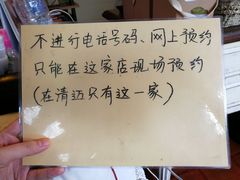 不进行电话号码、网上预约
只能在这家店现场预约
(在清迈只有这一家)